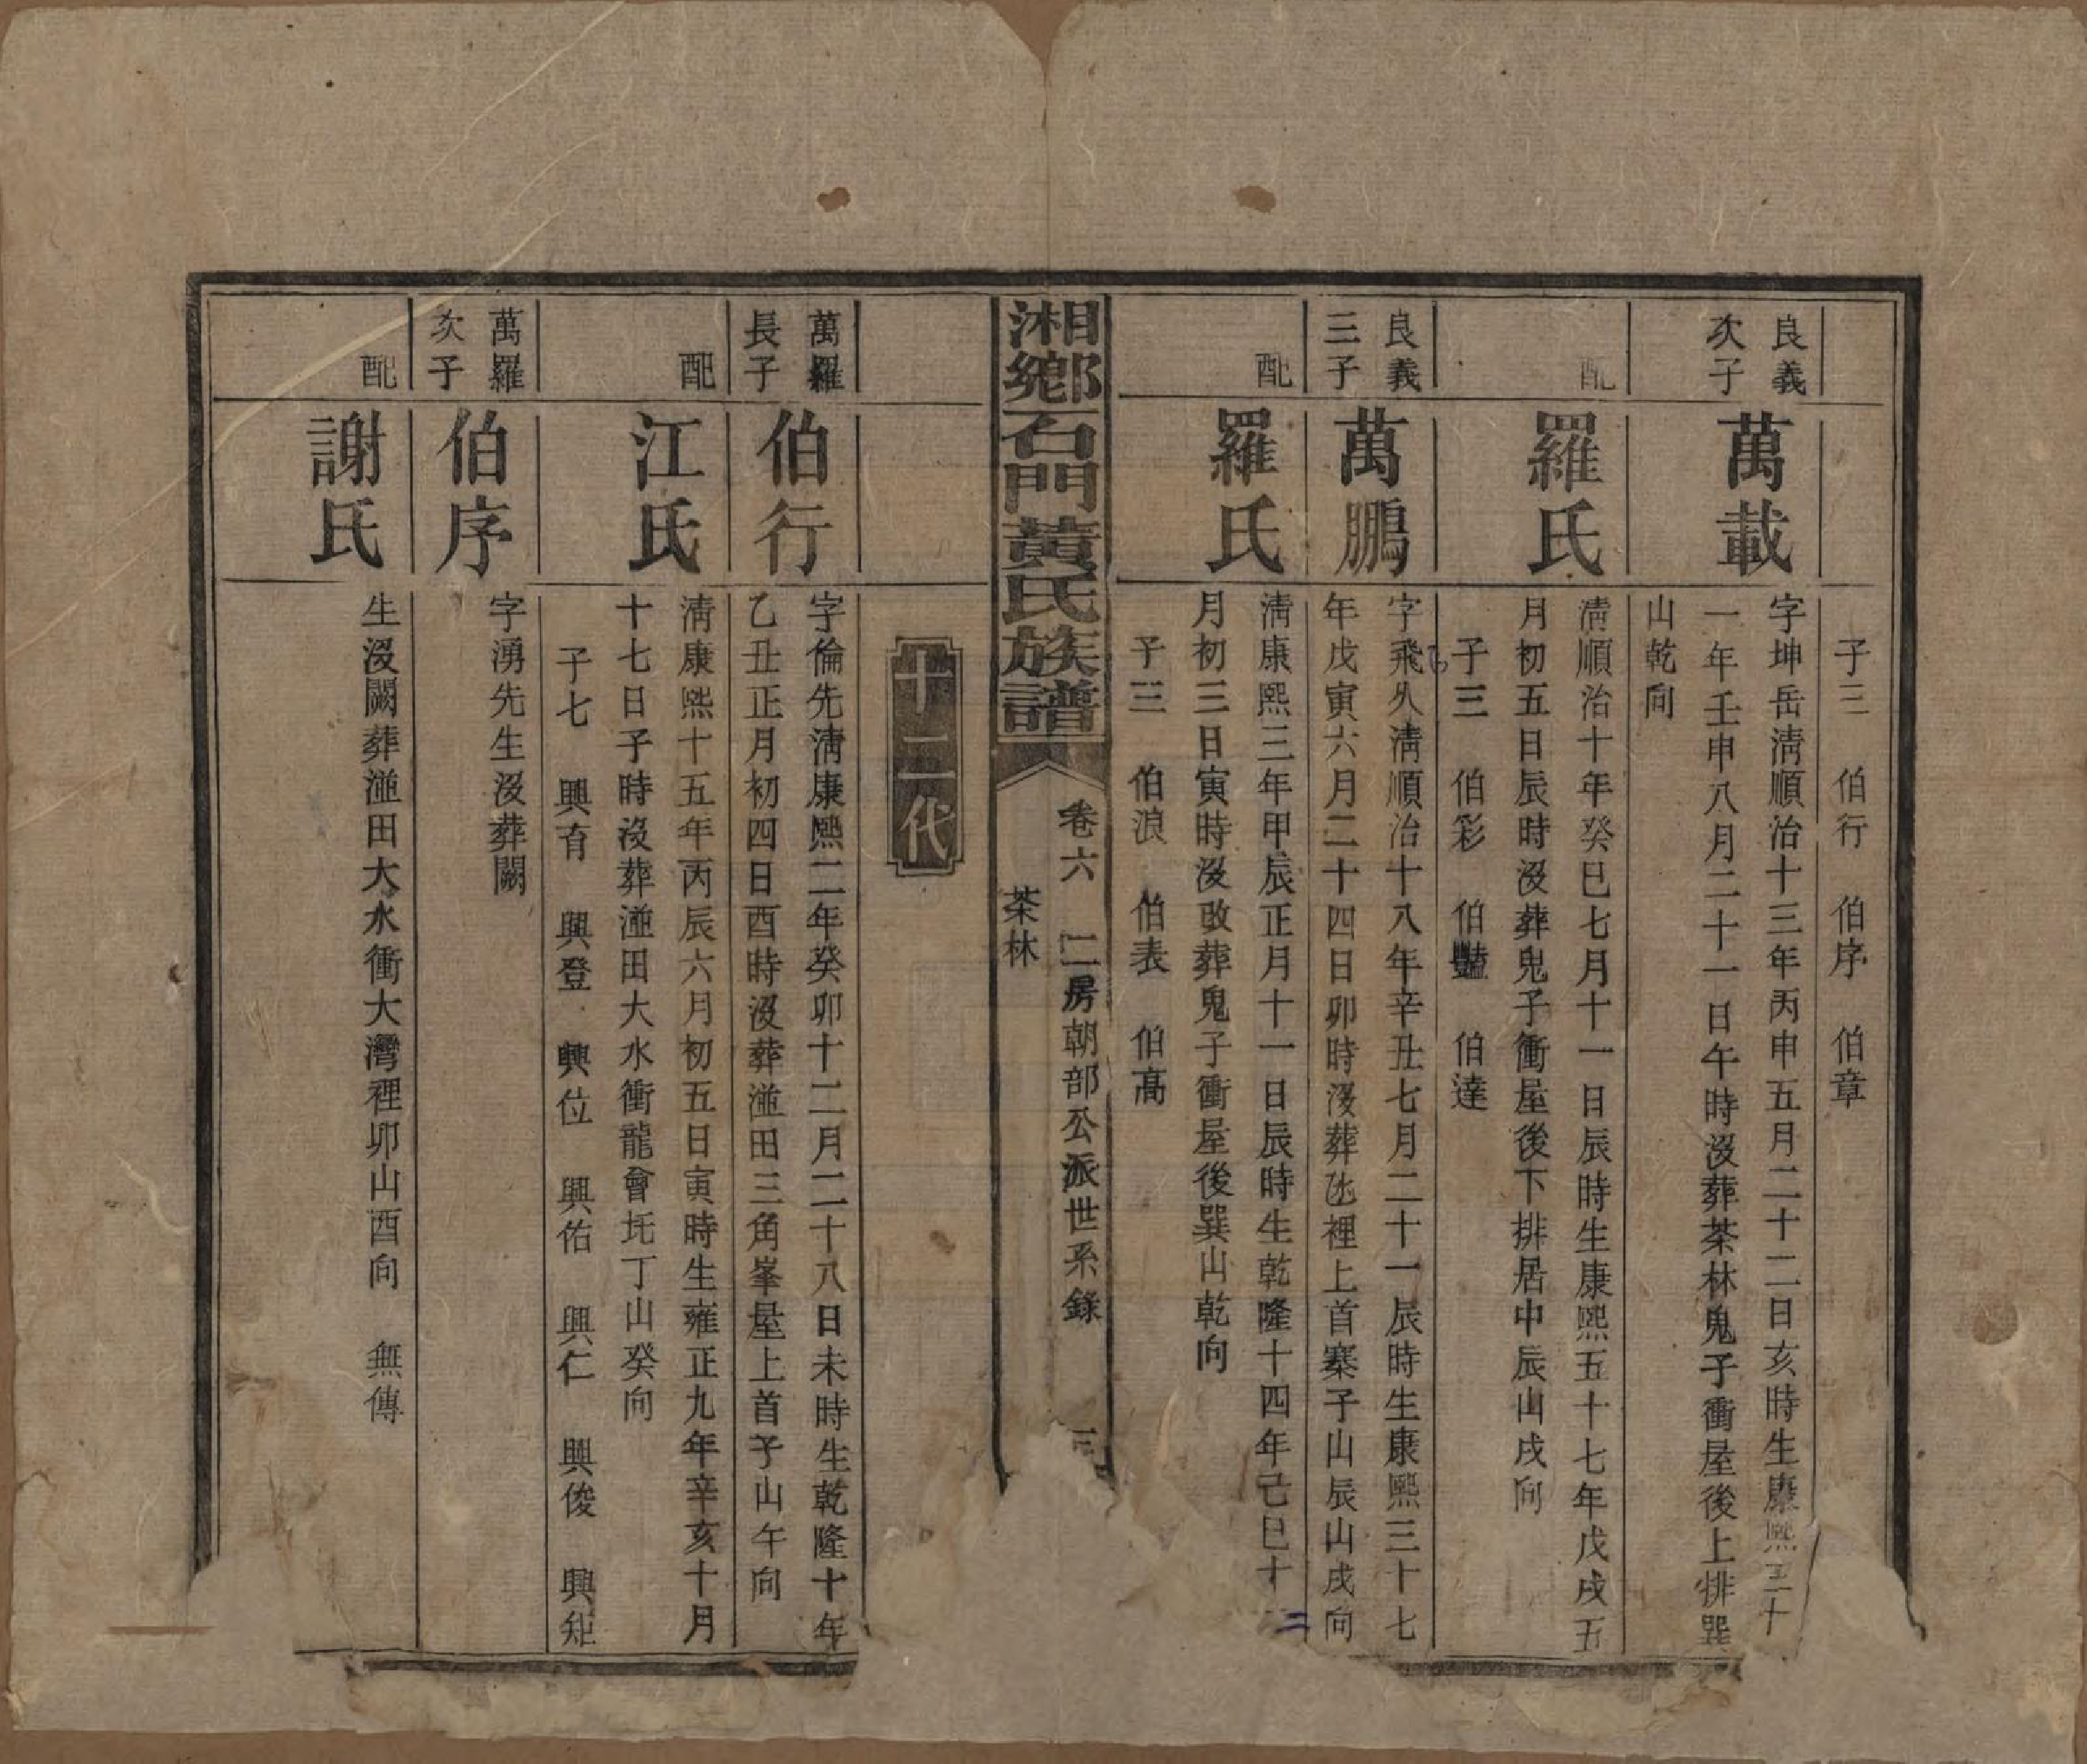 子三　伯行　伯序　伯章
良義
次子
萬載
字坤岳淸順治十三年丙申五月二十二日亥時生康熙三十
一年壬申八月二十一日午時沒葬茶林鬼子衝屋後上排巽
山乾向
配
羅氏
淸順治十年癸巳七月十一日辰時生康熙五十七年戊戌五
月初五日辰時沒葬鬼子衝屋後下排居中辰山戌向
子三　伯彩　伯豔　伯達
良義
三子
萬鵬
字飛久淸順治十八年辛丑七月二十一辰時生康熙三十七
年戊寅六月二十四日卯時沒葬氹裡上首寨子山辰山戌向
配
羅氏
淸康熙三年甲辰正月十一日辰時生乾隆十四年己巳十二
月初三日寅時沒改葬鬼子衝屋後巽山乾向
子三　伯浪　伯表　伯高
湘鄉石門黃氏族譜
卷六　二房朝部公派世系錄　三
茶林
十二代
萬羅
長子
伯行
字倫先淸康熙二年癸卯十二月二十八日未時生乾隆十年
乙丑正月初四日酉時沒葬湴田三角峯屋上首子山午向
配
江氏
淸康熙十五年丙辰六月初五日寅時生雍正九年辛亥十月
十七日子時沒葬湴田大水衝龍會圫丁山癸向
子七　興有　興登　興位　興佑　興仁　興俊　興矩
萬羅
次子
伯序
字湧先生沒葬闕
配
謝氏
生沒闕葬湴田大水衝大灣裡卯山酉向　無傳